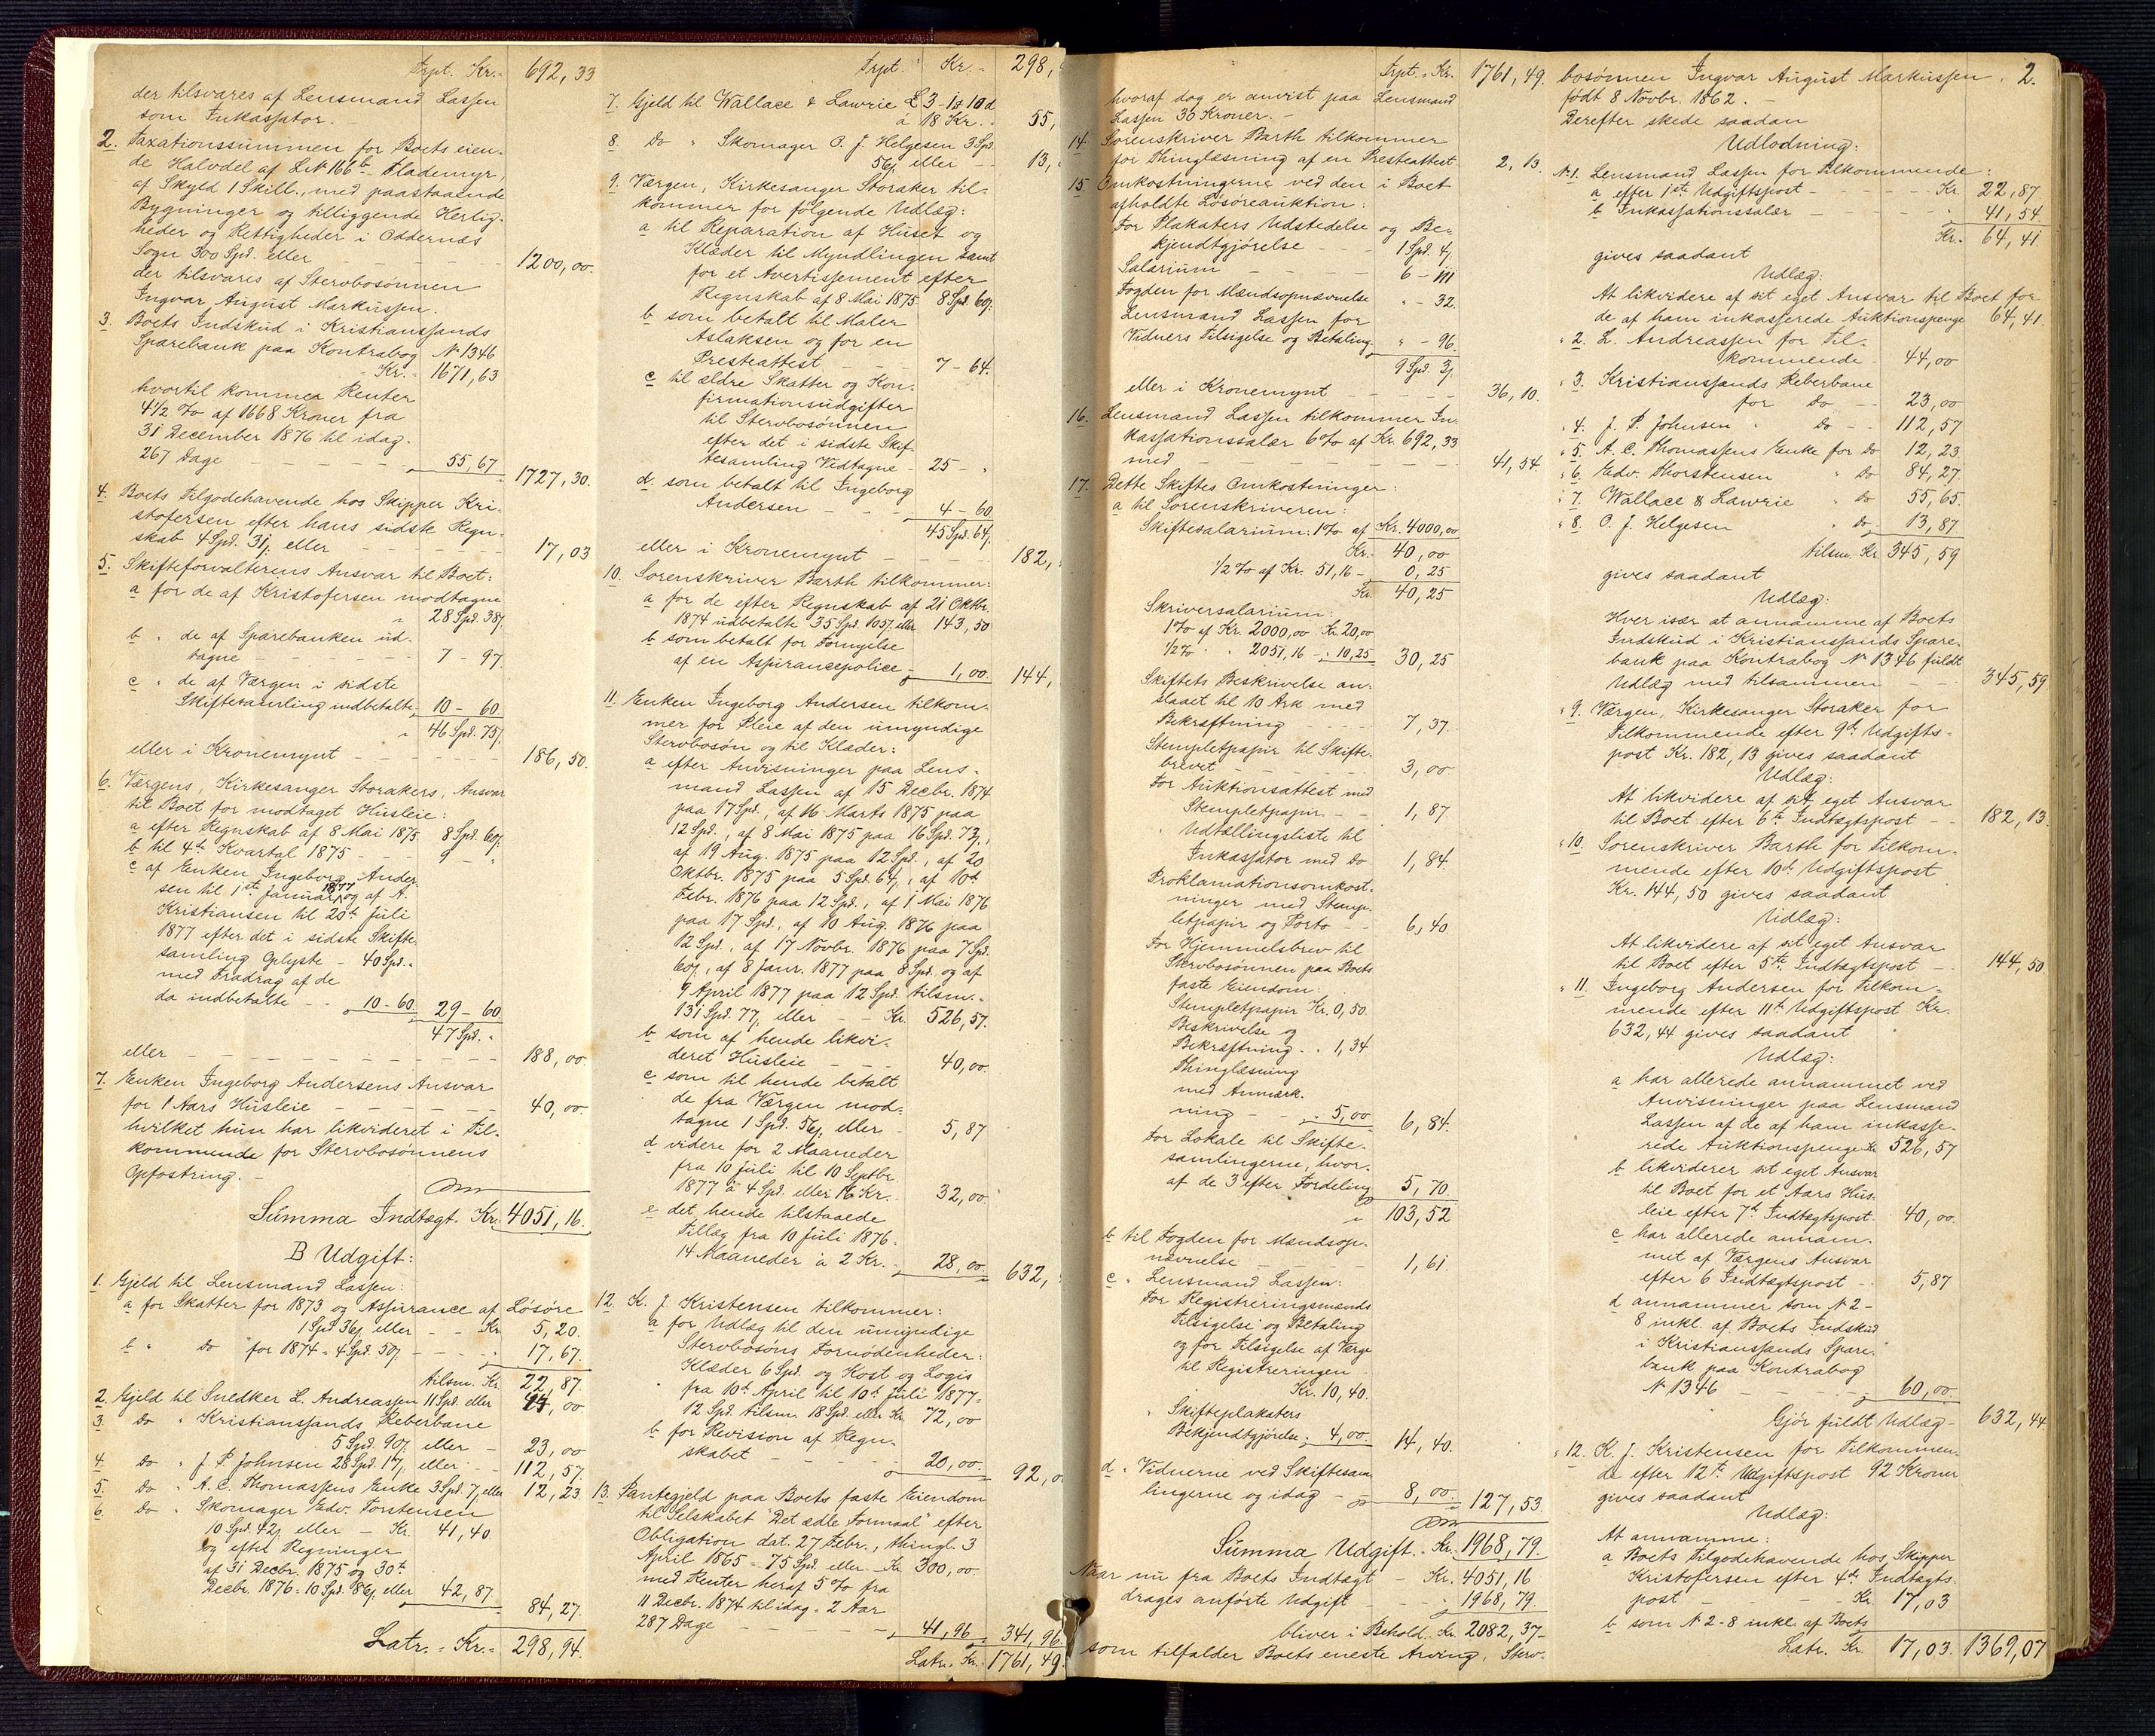 Trpt. Kr. - 692,33
der tilsvares af Lensmand Lassen
som Inkassator. -
2. Taxationssummen for Boets eien-
de Halvdel af LN 166b Flademyr,
af Skyld 1 Skill., med paastaaende
Bygninger og tilliggende Herlig-
heder og Rettigheder i Oddernæs
Sogn 300 Spd. eller - - - 1200,00.
der tilsvares af Stervbosønnen
Ingvar August Markussen.
3. Boets Indskud i Kristianssands
Sparebank paa Kontrabog N 1346
Kr. - 1671,63
hvortil kommer Renter
4 1/2 % af 1668 Kroner fra
31 December 1876 til idag.
267 Dage - - - 55,67 1727,30.
4. Boets Tilgodehavende hos Skipper Kri-
stofersen efter hans sidste Regn-
skab 4 Spd. 31 ƒ eller - - 17,03
5. Skifteforvalterens Ansvar til Boet:
a for de af Kristofersen modtagne
28 Spd. 38 ƒ
b " de af Sparebanken ud-
tagne - - - 7 - 97.
c " de af Værgen i sidste
Skiftesamling indbetalte 10 - 60.
" 46 Spd. 75 ƒ
eller i Kronemynt - - - 186,50.
6. Værgens, Kirkesanger Storakers, Ansvar
til Boet for modtaget Husleie:
a efter Regnskab af 8 Mai 1875 8 Spd. 60 ƒ
b til 4de Kvartal 1875 - - - 9 - "
c af Enken Ingeborg Ander-
sen til 1ste Januar 1877 og af A.
Kristiansen til 20de Juli
1877 efter det i sidste Skifte-
samling Oplyste - 40 Spd. "
med Fradrag af de
da indbetalte - - 10 - 60. 29 - 60.
47 Spd. "
eller - - - 188,00.
7. Enken Ingeborg Andersens Ansvar
for 1 Aars Husleie - - - 40,00.
hvilket hun har likvideret i Til-
kommende for Stervbosønnens
Opfostring. -
Summa Indtægt. Kr. 4051,16.
B Udgift:
1. Gjeld til Lensmand Lassen:
a for Skatter for 1873 og Assurance af Løsøre
1 Spd 36 ƒ eller - - Kr. 5,20.
b " Do for 1874 = 4 Spd. 50 ƒ - - - 17,67.
tilsm. Kr. 22,87.
2. Gjeld til Snedker L. Andreassen 11 Spd. eller 44,00.
3. Do " Kristianssands Reberbane
5 Spd. 90 ƒ eller - 23,00
4. Do " J. P. Johnsen 28 Spd. 17 ƒ eller - 112,57.
5. Do " A. C. Thomassens Enke 3 Spd. 7 ƒ eller 12,23
6. Do " Skomager Edv. Torstensen
10 Spd. 42 ƒ eller - Kr. 41,40.
og efter Regninger
af 31 Decbr. 1875 og 30te
Decbr. 1876 = 10 Spd. 86 ƒ eller 42,87.
84,27.
Latr. - Kr. - 298,94.
Trpt. Kr. - 298,
7. Gjeld til Wallace & Lawrie £ 3-1s 10d
á 18 Kr. - 55,
8. Do " Skomager O. J. Helgesen 3 Spd.
56 ƒ eller - - 13,
9. Værgen, Kirkesanger Storaker til-
kommer for følgende Udlæg:
a til Reparation af Huset og
Klæder til Myndlingen samt
for et Avertissement efter
Regnskab af 8 Mai 1875 8 Spd. 60 ƒ
b som betalt til Maler
Aslaksen og for en
Presteattest - - - 7 - 64.
c til ældre Skatter og Kon-
firmationsudgifter
til Stervbosønnen
efter det i sidste Skif-
tesamling Vedtagne - 25 - "
d. som betalt til Ingeborg
Andersen - - - 4 - 60.
45 Spd. 64 ƒ
eller i Kronemynt - - - 182,
10. Sorenskriver Barth tilkommer:
a for de efter Regnskab af 21 Oktbr.
1874 udbetalte 35 Spd. 105 ƒ eller 143,50
b som betalt for Fornyelse
af en Assurancepolice - 1,00. 144,
11. Enken Ingeborg Andersen tilkom-
mer for Pleie af den umyndige
Stervbosøn og til Klæder:
a efter Anvisninger paa Lens-
mand Lassen af 15 Decbr. 1874
paa 17 Spd., af 16 Marts 1875 paa
12 Spd., af 8 Mai 1875 paa 16 Spd. 73 ƒ,
af 19 Aug. 1875 paa 12 Spd., af 20
Oktbr. 1875 paa 5 Spd. 64 ƒ, af 10de
Febr. 1876 paa 12 Spd., af 1 Mai 1876
paa 17 Spd., af 10 Aug. 1876 paa
12 Spd., af 17 Novbr. 1876 paa 7 Spd.
60 ƒ, af 8 Janr. 1877 paa 8 Spd. og af
9 April 1877 paa 12 Spd. tilsm. -
131 Spd. 77 ƒ eller - - Kr. 526,57.
b som af hende likvi-
deret Husleie - - - 40,00.
c som til hende betalt
de fra Værgen mod-
tagne 1 Spd. 56 ƒ eller - 5,87
d videre for 2 Maaneder
fra 10 Juli til 10 Septbr.
1877 á 4 Spd. eller 16 Kr. 32,00.
e det hende tilstaaede
Tillæg fra 10 Juli 1876 -
14 Maaneder á 2 Kr. - 28,00. 632,
12. K. J. Kristensen tilkommer:
a for Udlæg til den umyndige
Stervbosøns Fornødenheder:
Klæder 6 Spd. og Kost og Logis
fra 10de April til 10de Juli 1877 =
12 Spd. tilsm. 18 Spd. eller Kr. 72,00
b for Revision af Regn-
skabet - - - 20,00. 92,0
13. Pantegjeld paa Boets faste Eiendom
til Selskabet "Det ædle Formaal" efter
Obligation dat. 27 Febr., thingl. 3
April 1865 = 75 Spd. eller Kr. 300,00.
med Renter heraf 5 % fra
11 Decbr. 1874 til idag = 2 Aar
287 Dage - - - 41,96. 341,96.
Latr. Kr. 1761,49.
Trpt. - Kr. 1761,49.
hvoraf dog er anvist paa Lensmand
Lassen 30 Kroner. -
14. Sorenskriver Barth tilkommer
for Thinglæsning af en Presteattest 2,13.
15. Omkostningerne ved den i Boet
afholdte Løsøreauktion:
For Plakaters Udstedelse og Be-
kjendtgjørelse - - 1 Spd. 4 ƒ
Salarium - - - 6 - 111
Fogden for Mændsopnævnelse " - 32.
Lensmand Lassen for
Vidners Tilsigelse og Betaling " - 96.
9 Spd 3 ƒ
eller i Kronemynt - - - 36,10.
16. Lensmand Lassen tilkommer In-
kassationssalær 6 % af Kr. 692,33
med - - - 41,54.
17. Dette Skiftes Omkostninger:
a til Sorenskriveren:
Skiftesalarium: 1 % af Kr. 4000,00
Kr. - 40,00
1/2 % af Kr. 51,16 - 0,25
Kr. 40,25
Skriversalarium:
1 % af Kr. 2000,00 Kr. 20,00
1/2 % " " 2051,16 - " 10,25 30,25
Skiftets Beskrivelse an-
slaaet til 10 Ark med
Bekræftning - - - 7,37.
Stempletpapir til Skifte-
brevet - - - 3,00
For Auktionsattest med
Stempletpapir - - 1,87.
" Udtællingsliste til
Inkassator med Do 1,84
Proklamationsomkost-
ninger med Stemp-
letpapir og Porto - - 6,40
For Hjemmelsbrev til
Stervbosønnen paa Boets
faste Eiendom:
Stempletpapir Kr. 0,50.
Beskrivelse og
Bekræftning - " 1,34
Thinglæsning
med Anmærk-
ning - - " 5,00 6,84.
For Lokale til Skifte-
samlingerne, hvor-
af de 3 efter Fordeling 5,70
" 103,52
b til Fogden for Mændsop-
nævnelse - - - 1,61
c " Lensmand Lassen:
For Registreringsmænds
Tilsigelse og Betaling
og for Tilsigelse af Værge
til Registreringen
Kr. 10,40.
" Skifteplakaters
Bekjendtgjørelse " 4,00. 14,40.
d " Vidnerne ved Skiftesam-
lingerne og idag - 8,00. 127,53.
Summa Udgift. - Kr. 1968,79.
Naar nu fra Boets Indtægt - Kr. 4051,16
drages anførte Udgift - - 1968,79.
bliver i Behold. Kr. 2082,37 -
som tilfalder Boets eneste Arving, Sterv-
bosønnen Ingvar August Markussen, 2.
født 8 Novbr. 1862. -
Derefter skede saadan
Udlodning:
N 1. Lensmand Lassen for Tilkommende:
a efter 1ste Udgiftspost - - - Kr. 22,87
b Inkassationssalær - - - 41,54.
Kr. 64,41
gives saadant
Udlæg:
At likvidere af sit eget Ansvar til Boet for
de af ham inkasserede Auktionspenge 64,41.
" 2. L. Andreassen for Til-
kommende - 44,00
" 3. Kristianssands Reberbane
for Do - - 23,00
" 4. J. P. Johnsen " Do - - 112,57
" 5. A. C. Thomassens Enke for Do 12,23
" 6. Edv. Thorstensen " Do 84,27.
" 7. Wallace & Lawrie " Do 55,65.
" 8. O. J. Helgesen " Do 13,87
tilsm. Kr. 345,59
gives saadant
Udlæg:
Hver især at annamme af Boets
Indskud i Kristianssands Spare-
bank paa Kontrabog N 1346 fuldt
Udlæg med tilsammen - - 345,59
" 9. Værgen, Kirkesanger Storaker for
Tilkommende efter 9de Udgifts-
post Kr. 182,13 gives saadant
Udlæg:
At likvidere af sit eget Ansvar
til Boet efter 6te Indtægtspost - - 182,13.
" 10. Sorenskriver Barth for Tilkom-
mende efter 10de Udgiftspost
Kr. 144,50 gives saadant
Udlæg:
At likvidere af sit eget Ansvar
til Boet efter 5te Indtægtspost - - 144,50.
" 11. Ingeborg Andersen for Tilkom-
mende efter 11te Udgiftspost Kr.
632,44 gives saadant
Udlæg:
a har allerede annammet ved
Anvisninger paa Lensmand
Lassen af de af ham inkasse-
rede Auktionspenge Kr. 526,57
b likviderer sit eget Ansvar
til Boet for et Aars Hus-
leie efter 7de Indtægtspost. 40,00.
c har allerede annam-
met af Værgens Ansvar
efter 6 Indtægtspost - - 5,87
d annammer som N 2 -
8 inkl. af Boets Indskud
i Kristianssands Spare-
bank paa Kontrabog
N 1346 - - - 60,00.
Gjør fuldt Udlæg - 632,44.
" 12. K. J. Kristensen for Tilkommen-
de efter 12te Udgiftspost 92 Kroner
gives saadant
Udlæg:
At annamme:
a Boets Tilgodehavende hos Skipper
Kristofersen efter 4de Indtægts-
post - - - Kr. 17,03
b som N 2-8 inkl af Boets
Latr. Kr. 17,03. 1369,07